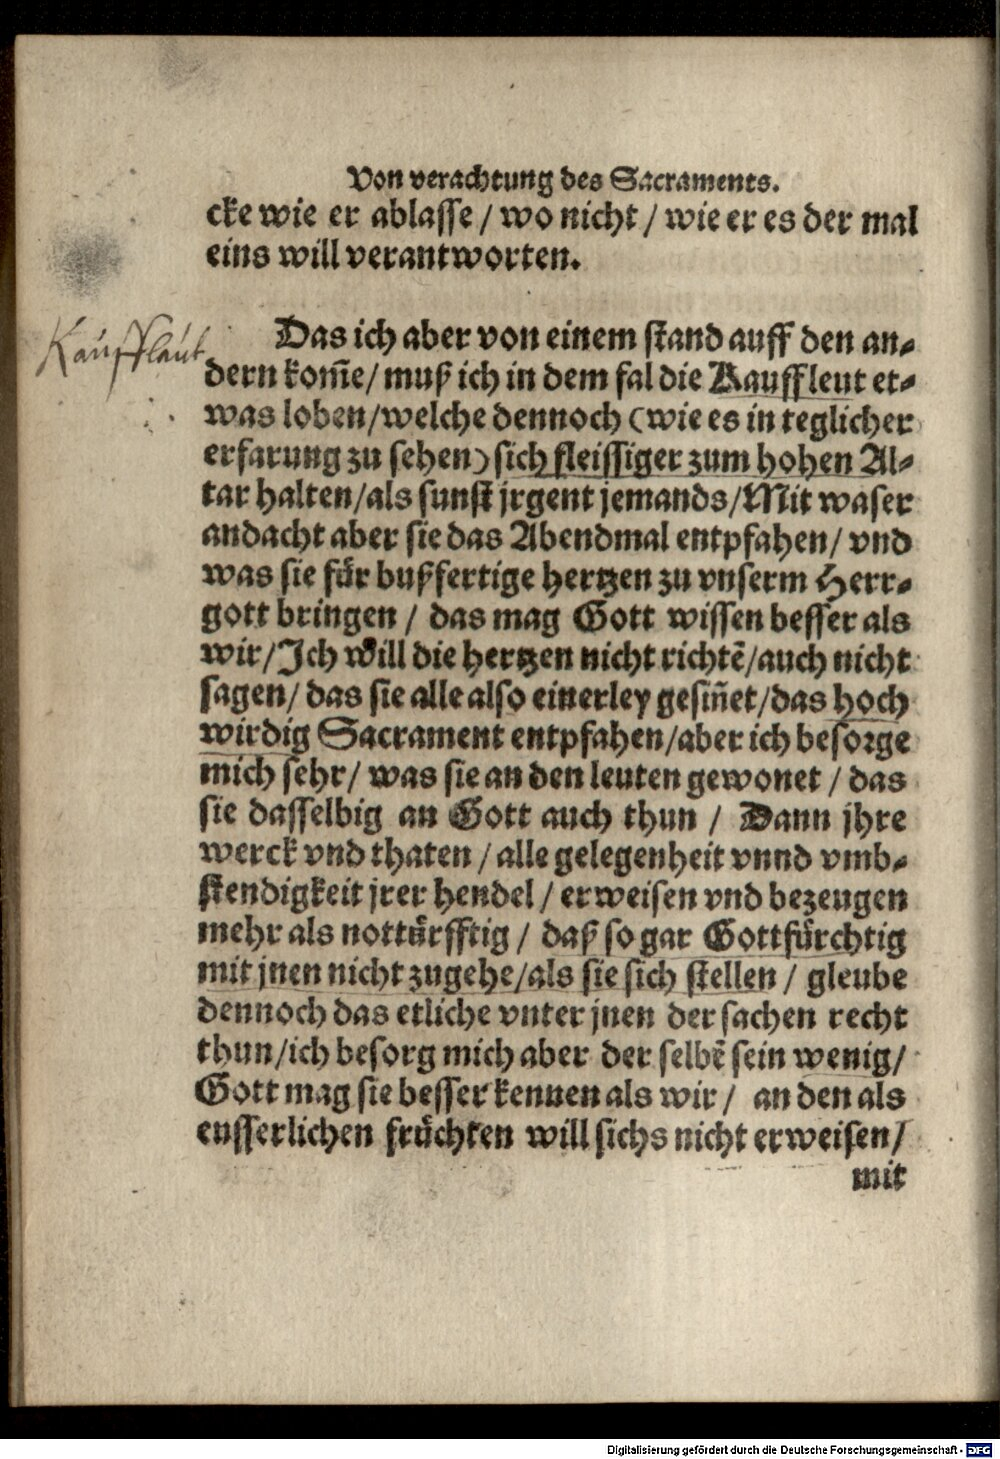 Von verachtung des Sacraments.
cke wie er ablasse / wo nicht / wie er es der mal
eins will verantworten.
Kauffläut
Das ich aber von einem stand auff den an-
dern kom̃e/ muß ich in dem fal die Kauffleut et-
was loben/welche dennoch (wie es in teglicher
erfarung zu sehen) sich fleissiger zum hohen Al-
tar halten/als sunst jrgent jemands/Mit waser
andacht aber sie das Abendmal entpfahen/ vnd
was sie für bußfertige hertzen zu vnserm Herr-
gott bringen / das mag Gott wissen besser als
wir/Ich will die hertzen nicht richtẽ/auch nicht
sagen/ das sie alle also einerley gesiñet/das hoch
wirdig Sacrament entpfahen/aber ich besorge
mich sehr/ was sie an den leuten gewonet / das
sie dasselbig an Gott auch thun / Dann jhre
werck vnd thaten / alle gelegenheit vnnd vmb-
stendigkeit jrer hendel / erweisen vnd bezeugen
mehr als nottürfftig / daß so gar Gottfürchtig
mit jnen nicht zugehe/als sie sich stellen / gleube
dennoch das etliche vnter jnen der sachen recht
thun/ich besorg mich aber der selbẽ sein wenig/
Gott mag sie besser kennen als wir / an den als
eusserlichen früchten will sichs nicht erweisen/
mit
Digitalisierung gefördert durch die Deutsche Forschungsgemeinschaft - DFG